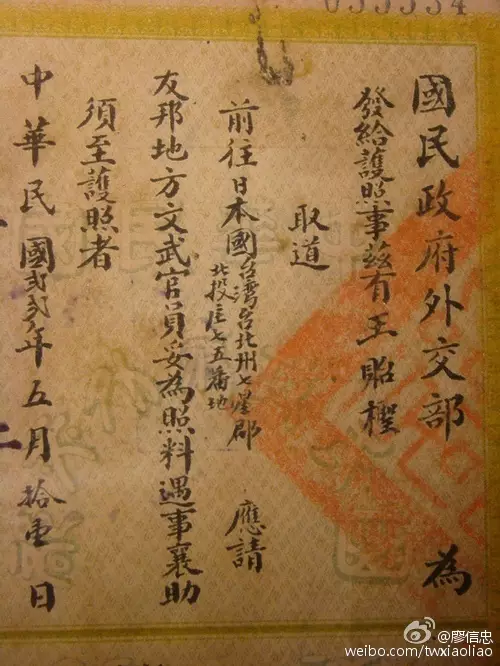 國民政府外交部 為
發給護照事茲有王
取道
前往日本國台灣台北州七星郡
北投庄七五番地 應請
友邦地方文武官員妥為照料遇事襄助
須至護照者
中華民國貳貳年五月拾壹日
@廖信忠
weibo.com/twxiaoliao